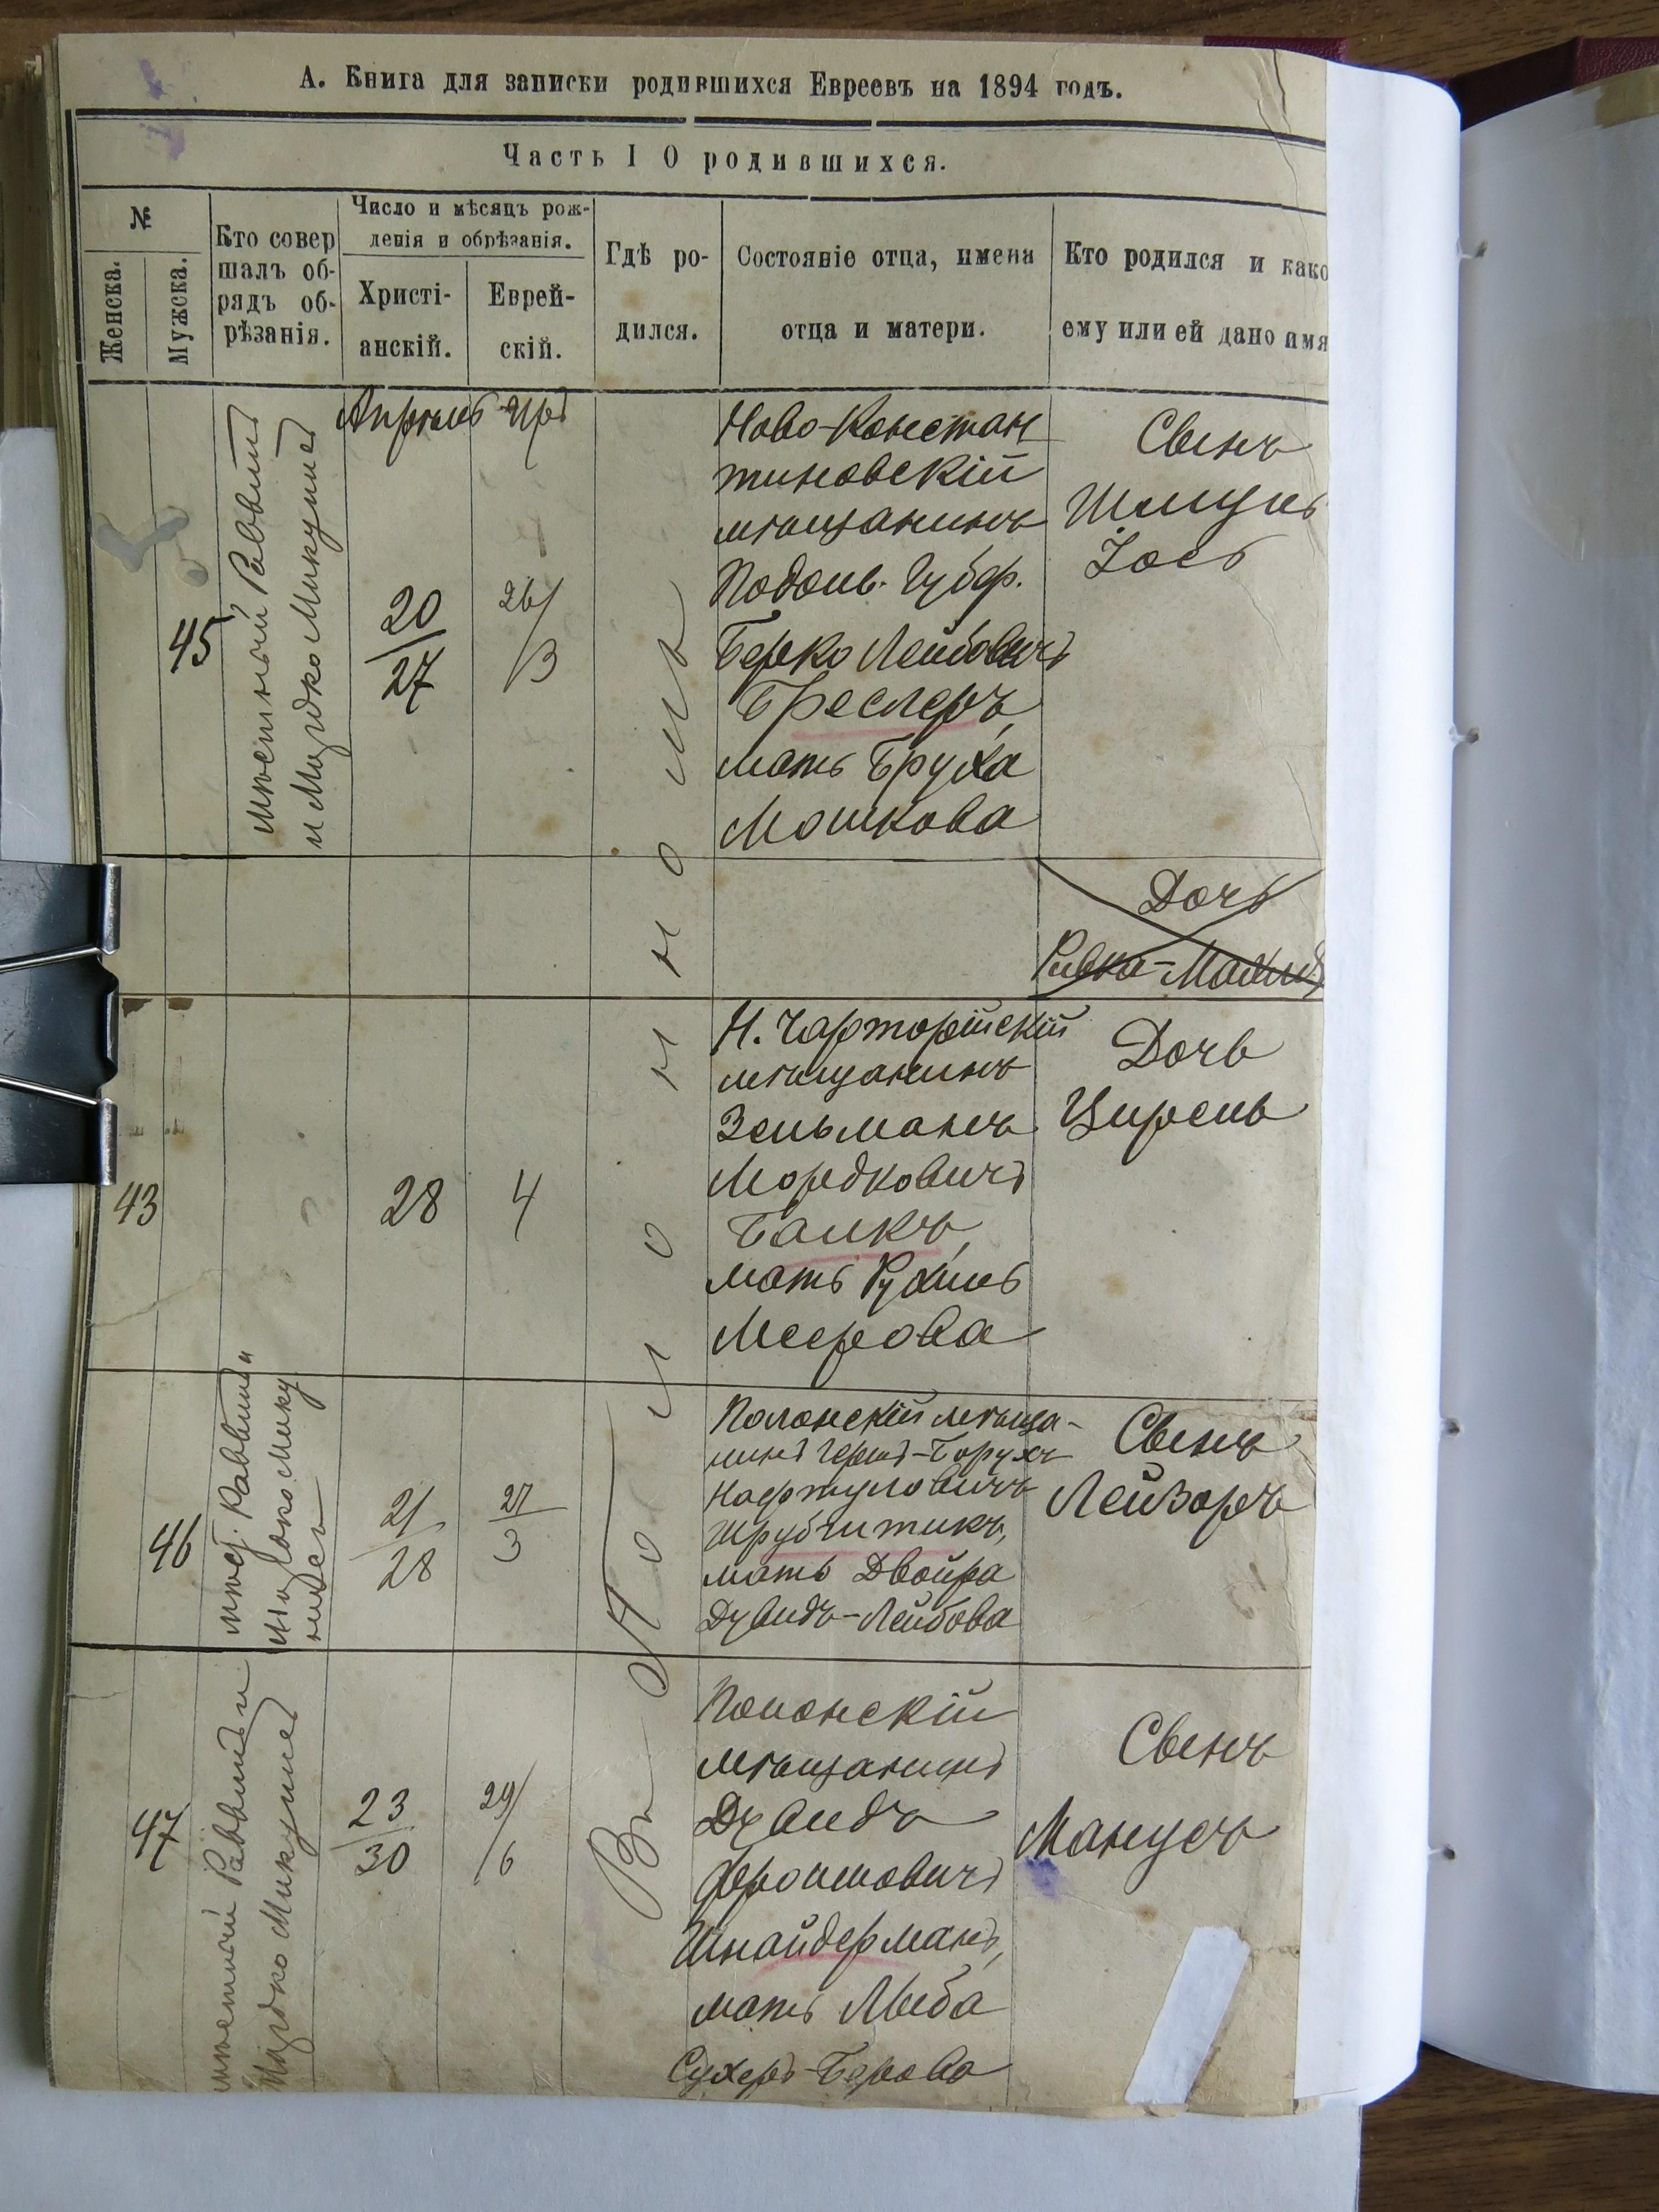 А. Книга для записки родившихся Евреевъ на 1894 годъ.
Часть I О родившихся.
№
Женска.
Мужска.
Кто совер
шалъ об-
рядъ об-
рѣзанія.
Число и мѣсяцъ рож-
денія и обрѣзанія.
Христі-
анскій.
Еврей-
скій.
Гдѣ ро-
дился.
Состояніе отца, имена
отца и матери.
Кто родился и како
ему или ей дано имя
Апрѣль
Іръ
45
Мѣстный Раввинъ
и Мордко Микулисъ
20
27
26/
/3
Ново-Констан
тиновскій
мѣщанинъ
Подольс. Губер.
Берко Лейбовичъ
Бреслеръ,
мать Бруха
Мошкова
Сынъ
Шмуль
Іось
Дочь
Ривка-Малка
43
28
4
Н. Чарторійскій
мѣщанинъ
Зельманъ
Мордковичъ
Балкъ,
мать Рухль
Меерова
Дочь
Цирель
46
мѣс. Раввинъ и
21
28
27
3
Полонскій мѣща-
нинъ Гершъ-Борухъ
Нафтуловичъ
мать Двойра
Дувидъ-Лейбова
Сынъ
Лейзоръ
47
мѣстный Раввинъ и
Мордко Микулисъ
23
30
29/
/6
Полонскій
мѣщанинъ
Дувидъ
Фроимовичъ
Шнайдерманъ,
мать Либа
Сухеръ-Берова
Сынъ
Манусъ
Въ Полонномъ